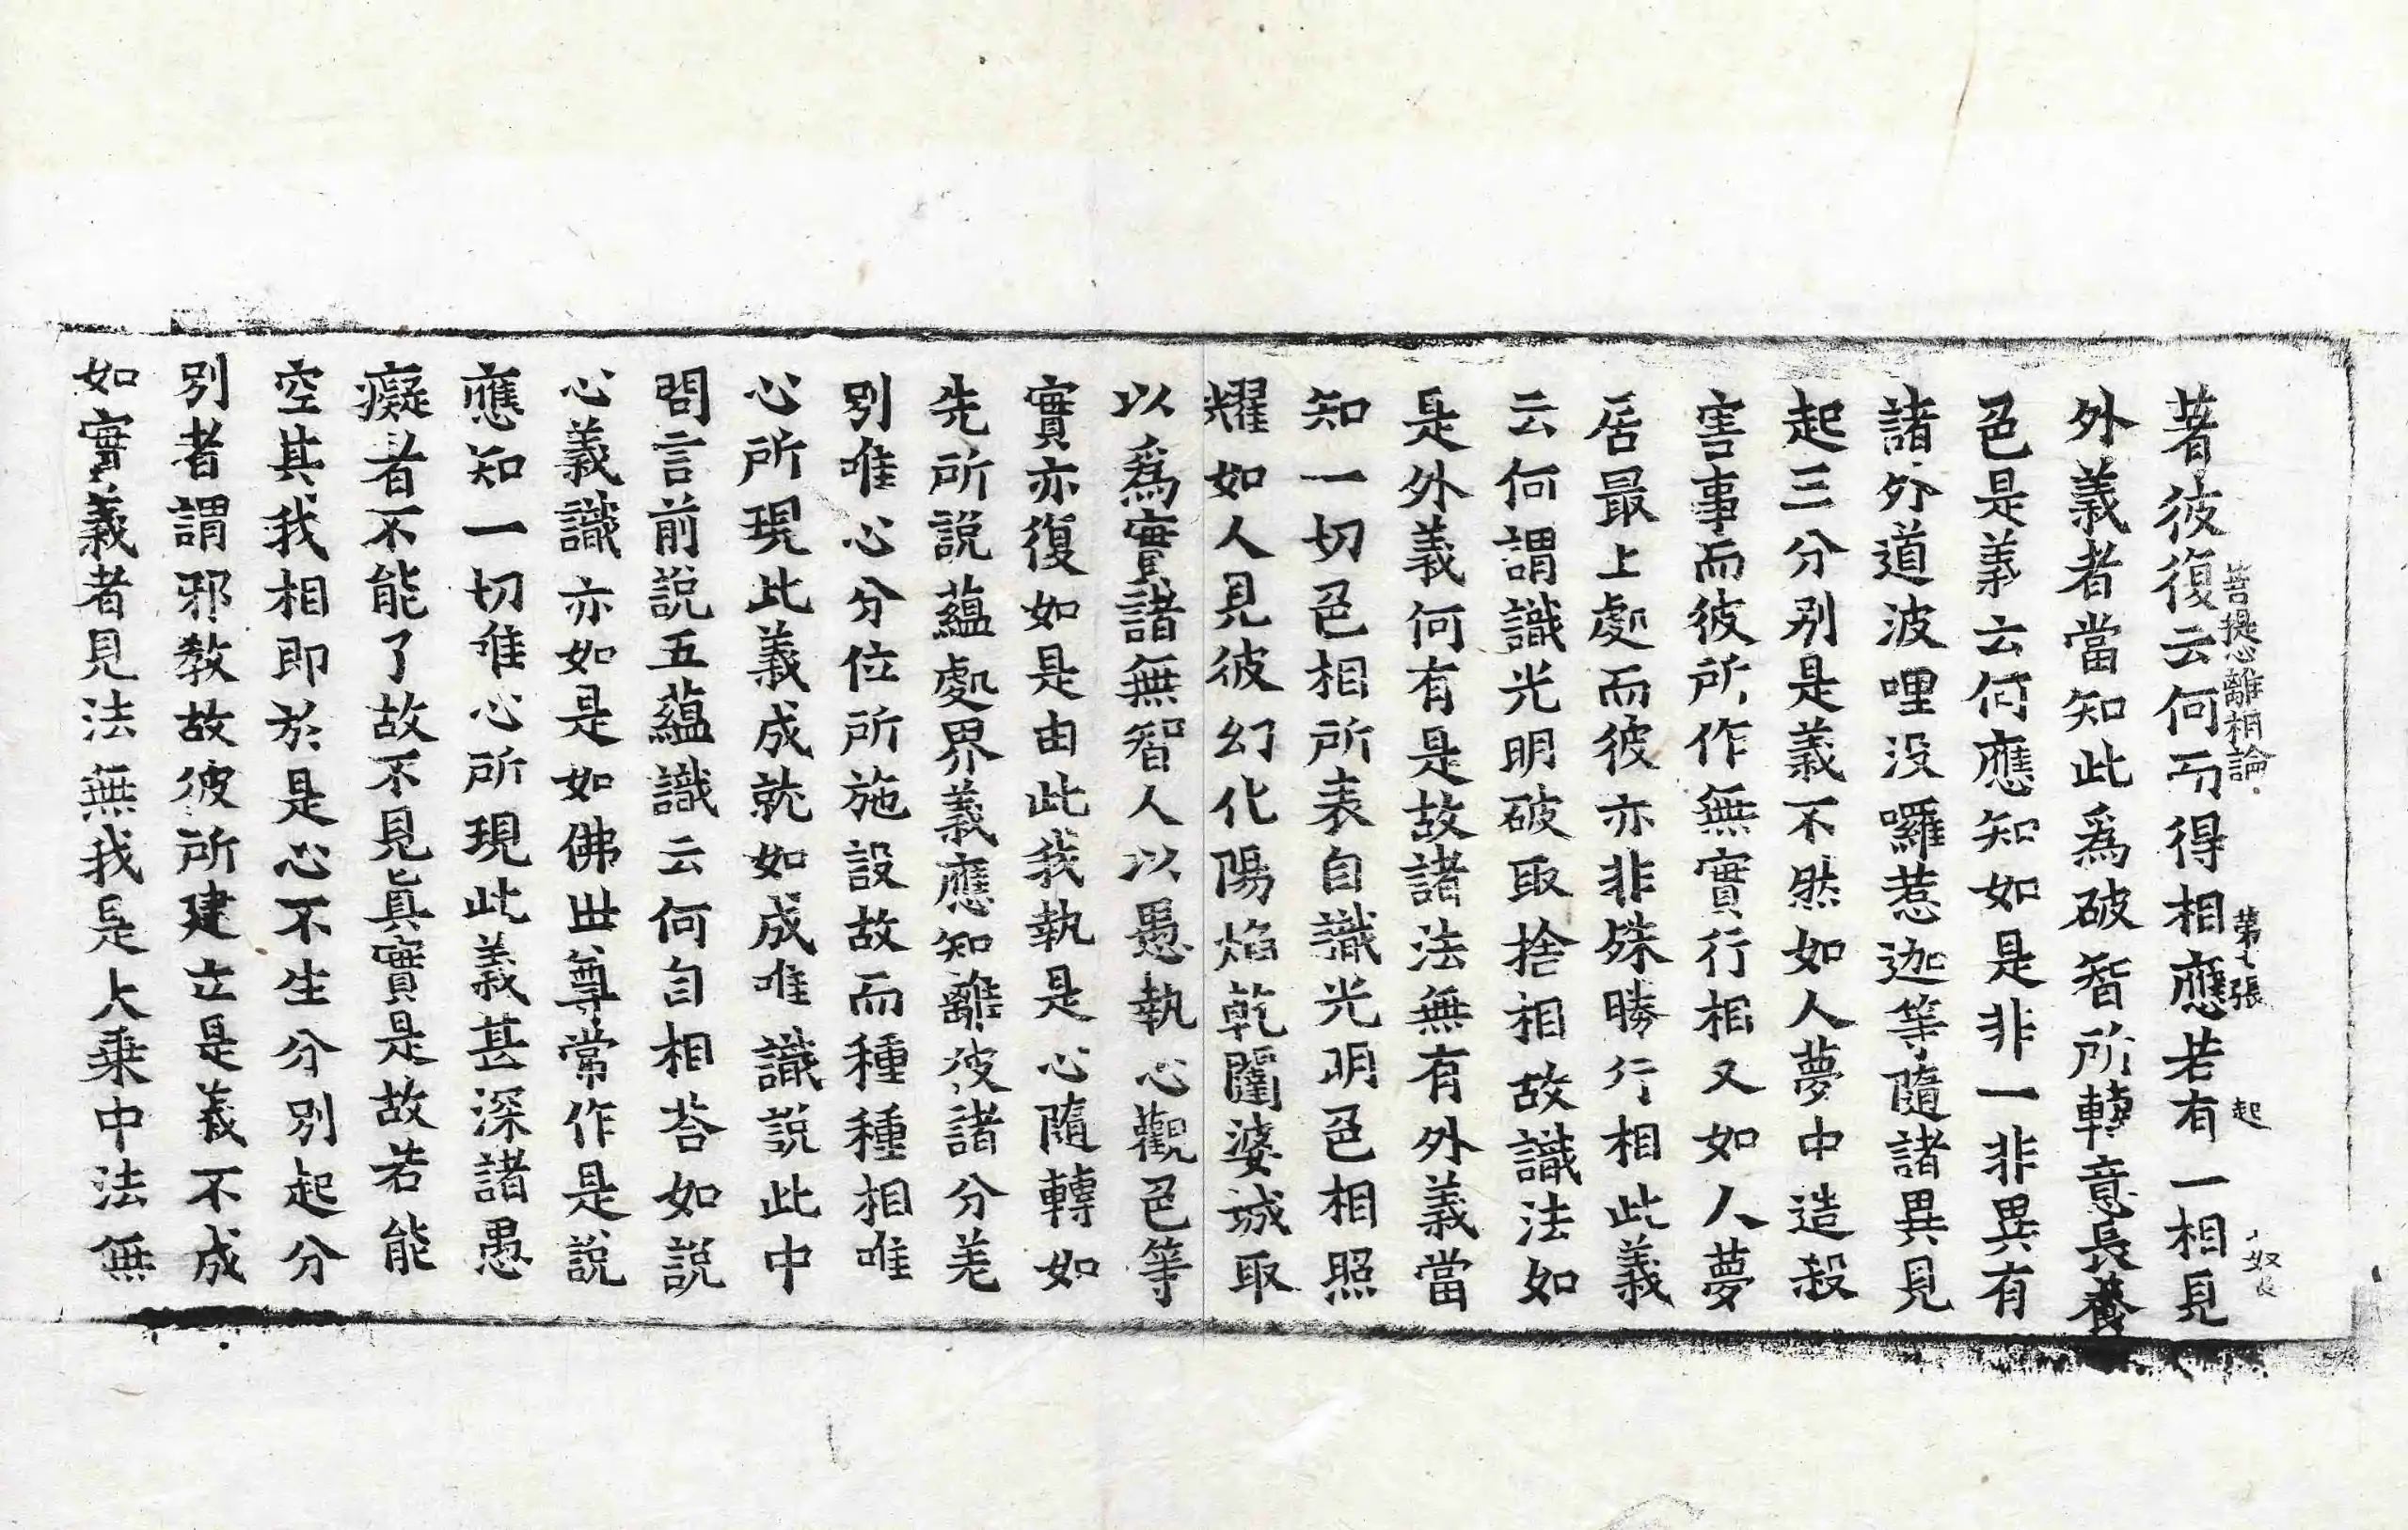 菩提心離相論 第七張 起
著彼復云何而得相應若有一相見
外義者當知此爲破智所轉意長養
色是義云何應知如是非一非異有
諸外道波哩没囉惹迦等隨諸異見
起三分别是義不然如人夢中造殺
害事而彼所作無實行相又如人夢
居最上處而彼亦非殊勝行相此義
云何謂識光明破取捨相故識法如
是外義何有是故諸法無有外義當
知一切色相所表自識光明色相照
耀如人見彼幻化陽焰乾闥婆城取
以爲實諸無智人以愚執心觀色等
實亦復如是由此我執是心隨轉如
先所說蘊處界義應知離彼諸分差
別唯心分位所施設故而種種相唯
心所現此義成就如成唯識說此中
問言前說五蘊識云何自相荅如說
心義識亦如是如佛世尊常作是說
應知一切唯心所現此義甚深諸愚
癡者不能了故不見眞實是故若能
空其我相即於是心不生分別起分
別者謂邪教故彼所建立是義不成
如實義者見法無我是大乘中法無